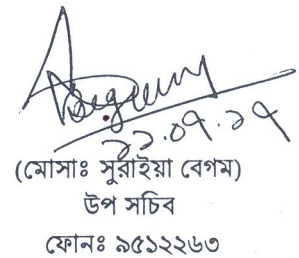 Begum
২২.০৭.১৭
(মোসাঃ সুরাইয়া বেগম)
উপ সচিব
ফোনঃ ৯৫১২২৬৩